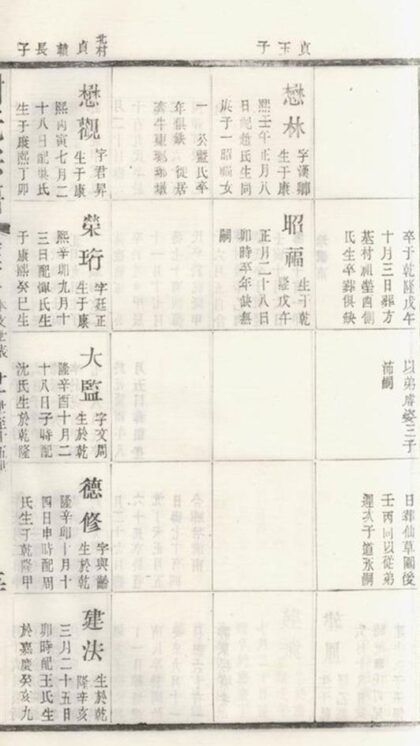 貞玉子
卒于乾隆戊午
十月三日葬方
基村祖塋西側
氏生卒葬俱缺
以弟
三子
日葬仙草園後
壬丙同以從弟
子道永嗣
懋林
字漢卿
生于康
熙壬午正月八
日配趙氏生同
庚子一昭福女
一 公暨氏卒
年俱缺 從居
昭福
生于乾
隆戊午
正月二十八日
卯時卒年缺無
嗣
北村
貞
長
子
懋觀
字君昇
生于康
熙丙寅七月二
十八日配吳氏
生于康熙丁卯
榮珩
字廷正
生于康
熙辛卯九月十
三日配
氏生
于康熙癸巳生
大監
字文周
生於乾
隆辛酉十月二
十八日子時配
沈氏生於乾隆
德修
字與齡
生於乾
隆辛卯十月十
四日申時配周
氏生于乾隆甲
建法
生於乾
隆辛亥
三月二十五日
卯時配王氏生
於嘉慶癸亥九